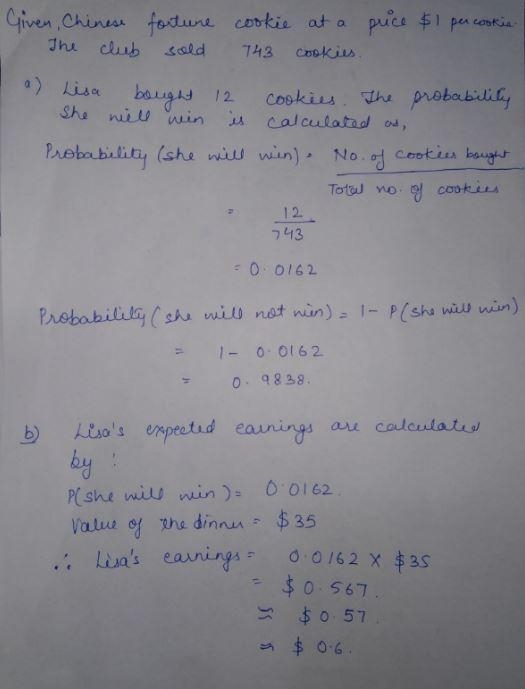 Given, Chinese fortune cookie at a price $1 per cookie.
The club sold 743 cookies.
a) Lisa bought 12 cookies. The probability
she will win is calculated as,
Probability (she will win) = No. of cookies bought
Total no. of cookies
= 12
743
= 0.0162
Probability (she will not win) = 1- P(she will win)
= 1- 0.0162
= 0.9838.
b) Lisa's expected earnings are calculated
by :
P(she will win) = 0.0162.
Value of the dinner = $35
∴ Lisa's earnings = 0.0162 X $35
= $0.567.
≈ $0.57
≈ $0.6.